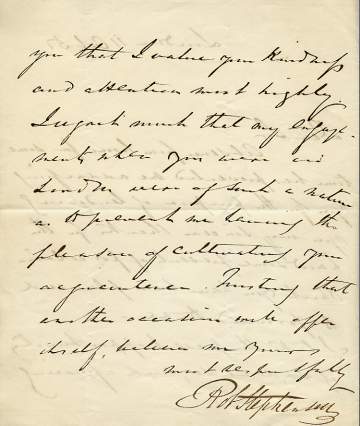 you that I value your kindness
and attention most highly
I regret much that my engage-
ments when you were in
London were of such a nature
as to prevent me having the
pleasure of cultivating your
acquaintance. Trusting that
another occasion will offer
itself, believe me yours
most respectfully
Rob Stephenson